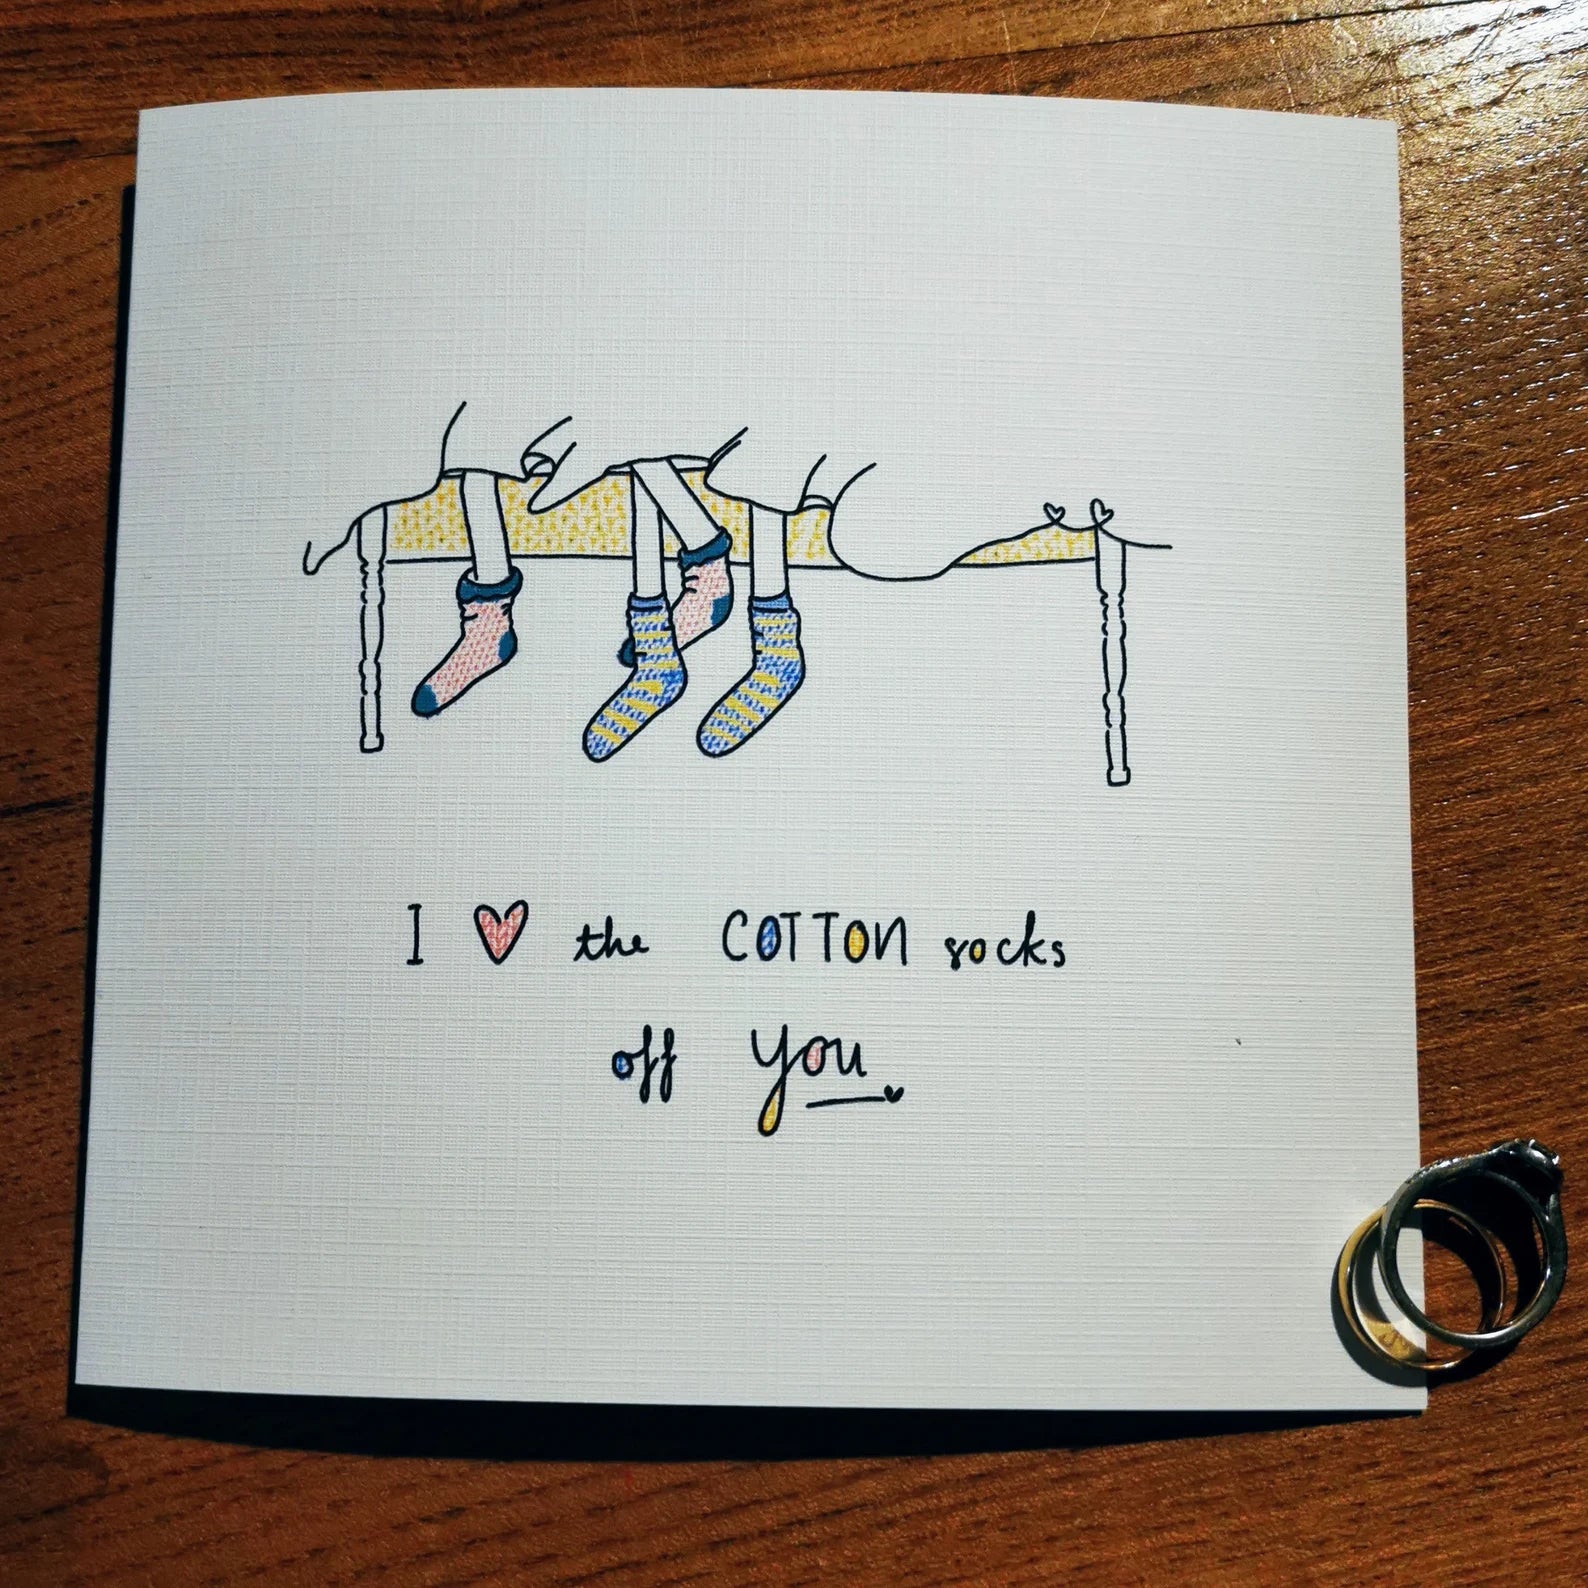 I ♥ the COTTON socks
off you